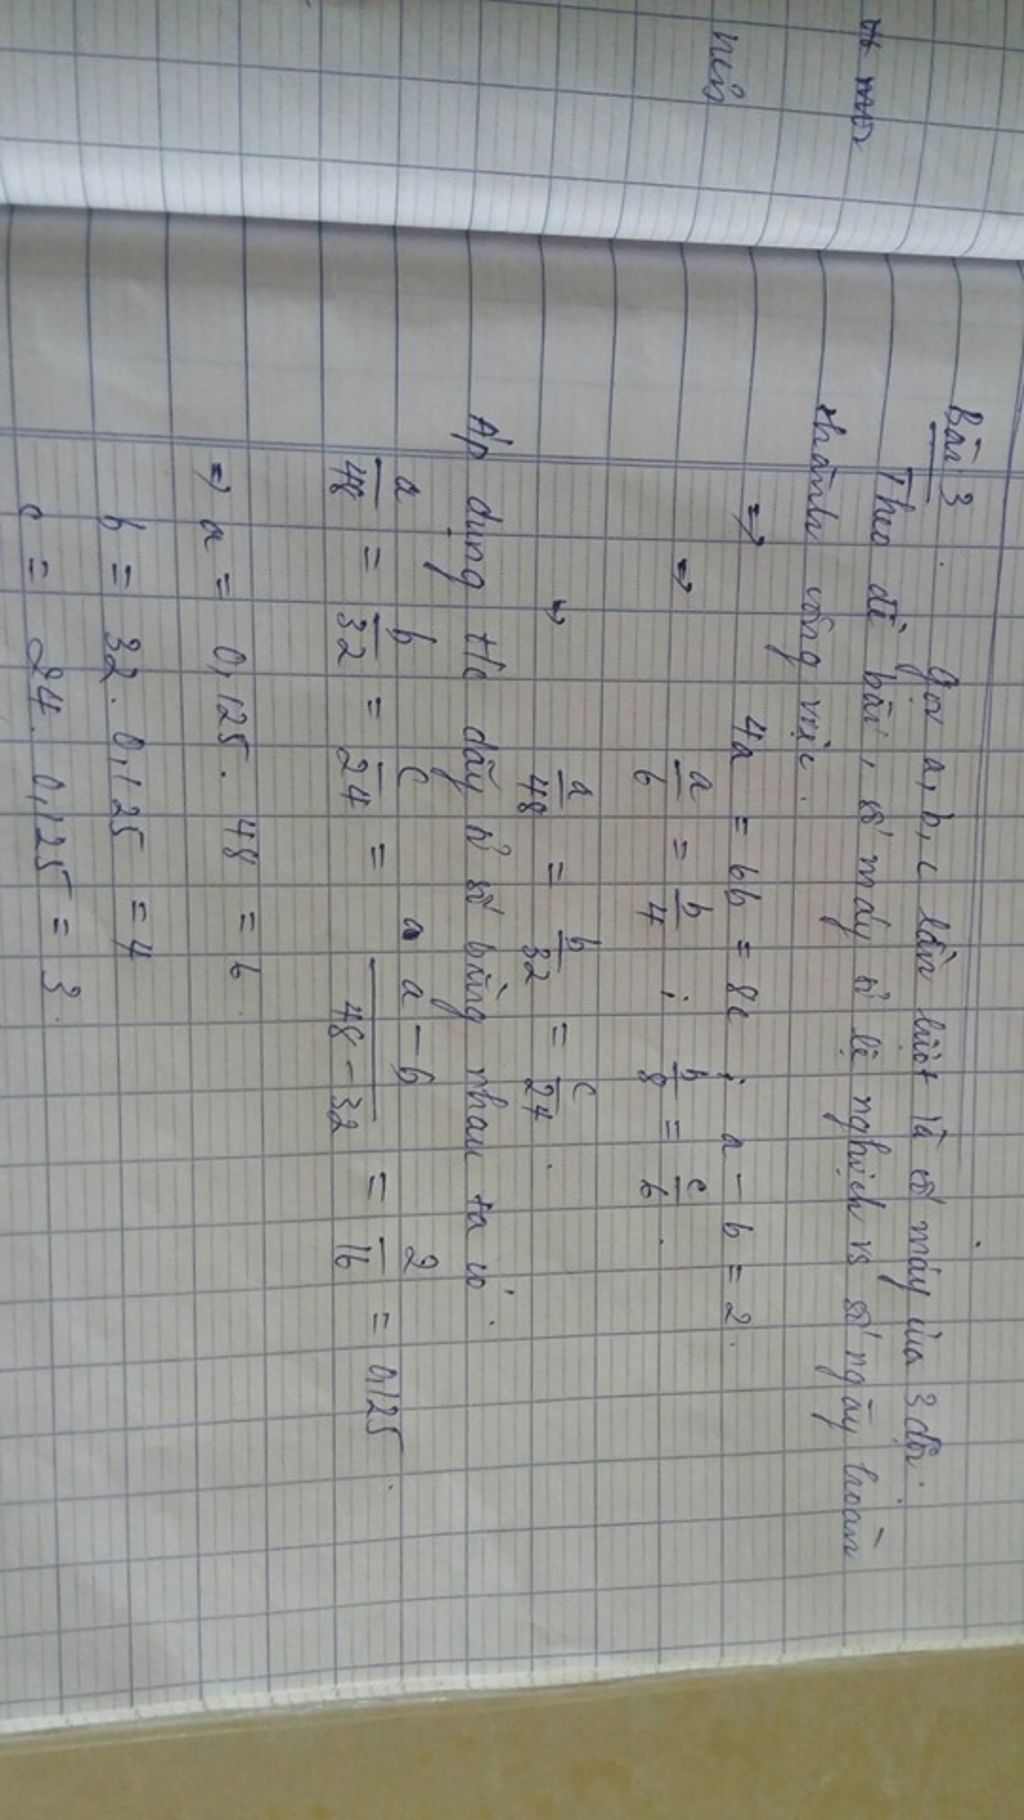 nếu
Bài 3
Gọi a, b, c lần lượt là số máy của 3 đội.
Theo đề bài, số máy tỉ lệ nghịch vs số ngày hoàn
thành công việc.
=> 4a = 6b = 8c ; a - b = 2.
=> a/6 = b/4 ; b/8 = c/6.
=> a/48 = b/32 = c/24.
Áp dụng t/c dãy tỉ số bằng nhau ta có.
a/48 = b/32 = c/24 = a - b/48 - 32 = 2/16 = 0,125.
=> a = 0,125 . 48 = 6.
b = 32 . 0,125 = 4
c = 24 . 0,125 = 3.